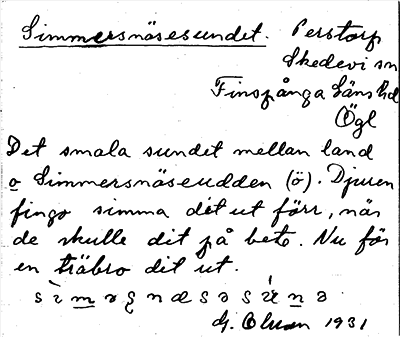 Simmersnäsesundet. Perstorp
Skedevi sn
Finspånga Läns hd
Ögl
Det smala sundet mellan land
o Simmersnäseudden (ö). Djuren
fingo simma dit ut förr, när
de skulle dit på bete. Nu för
en träbro dit ut.
G. Olson 1931